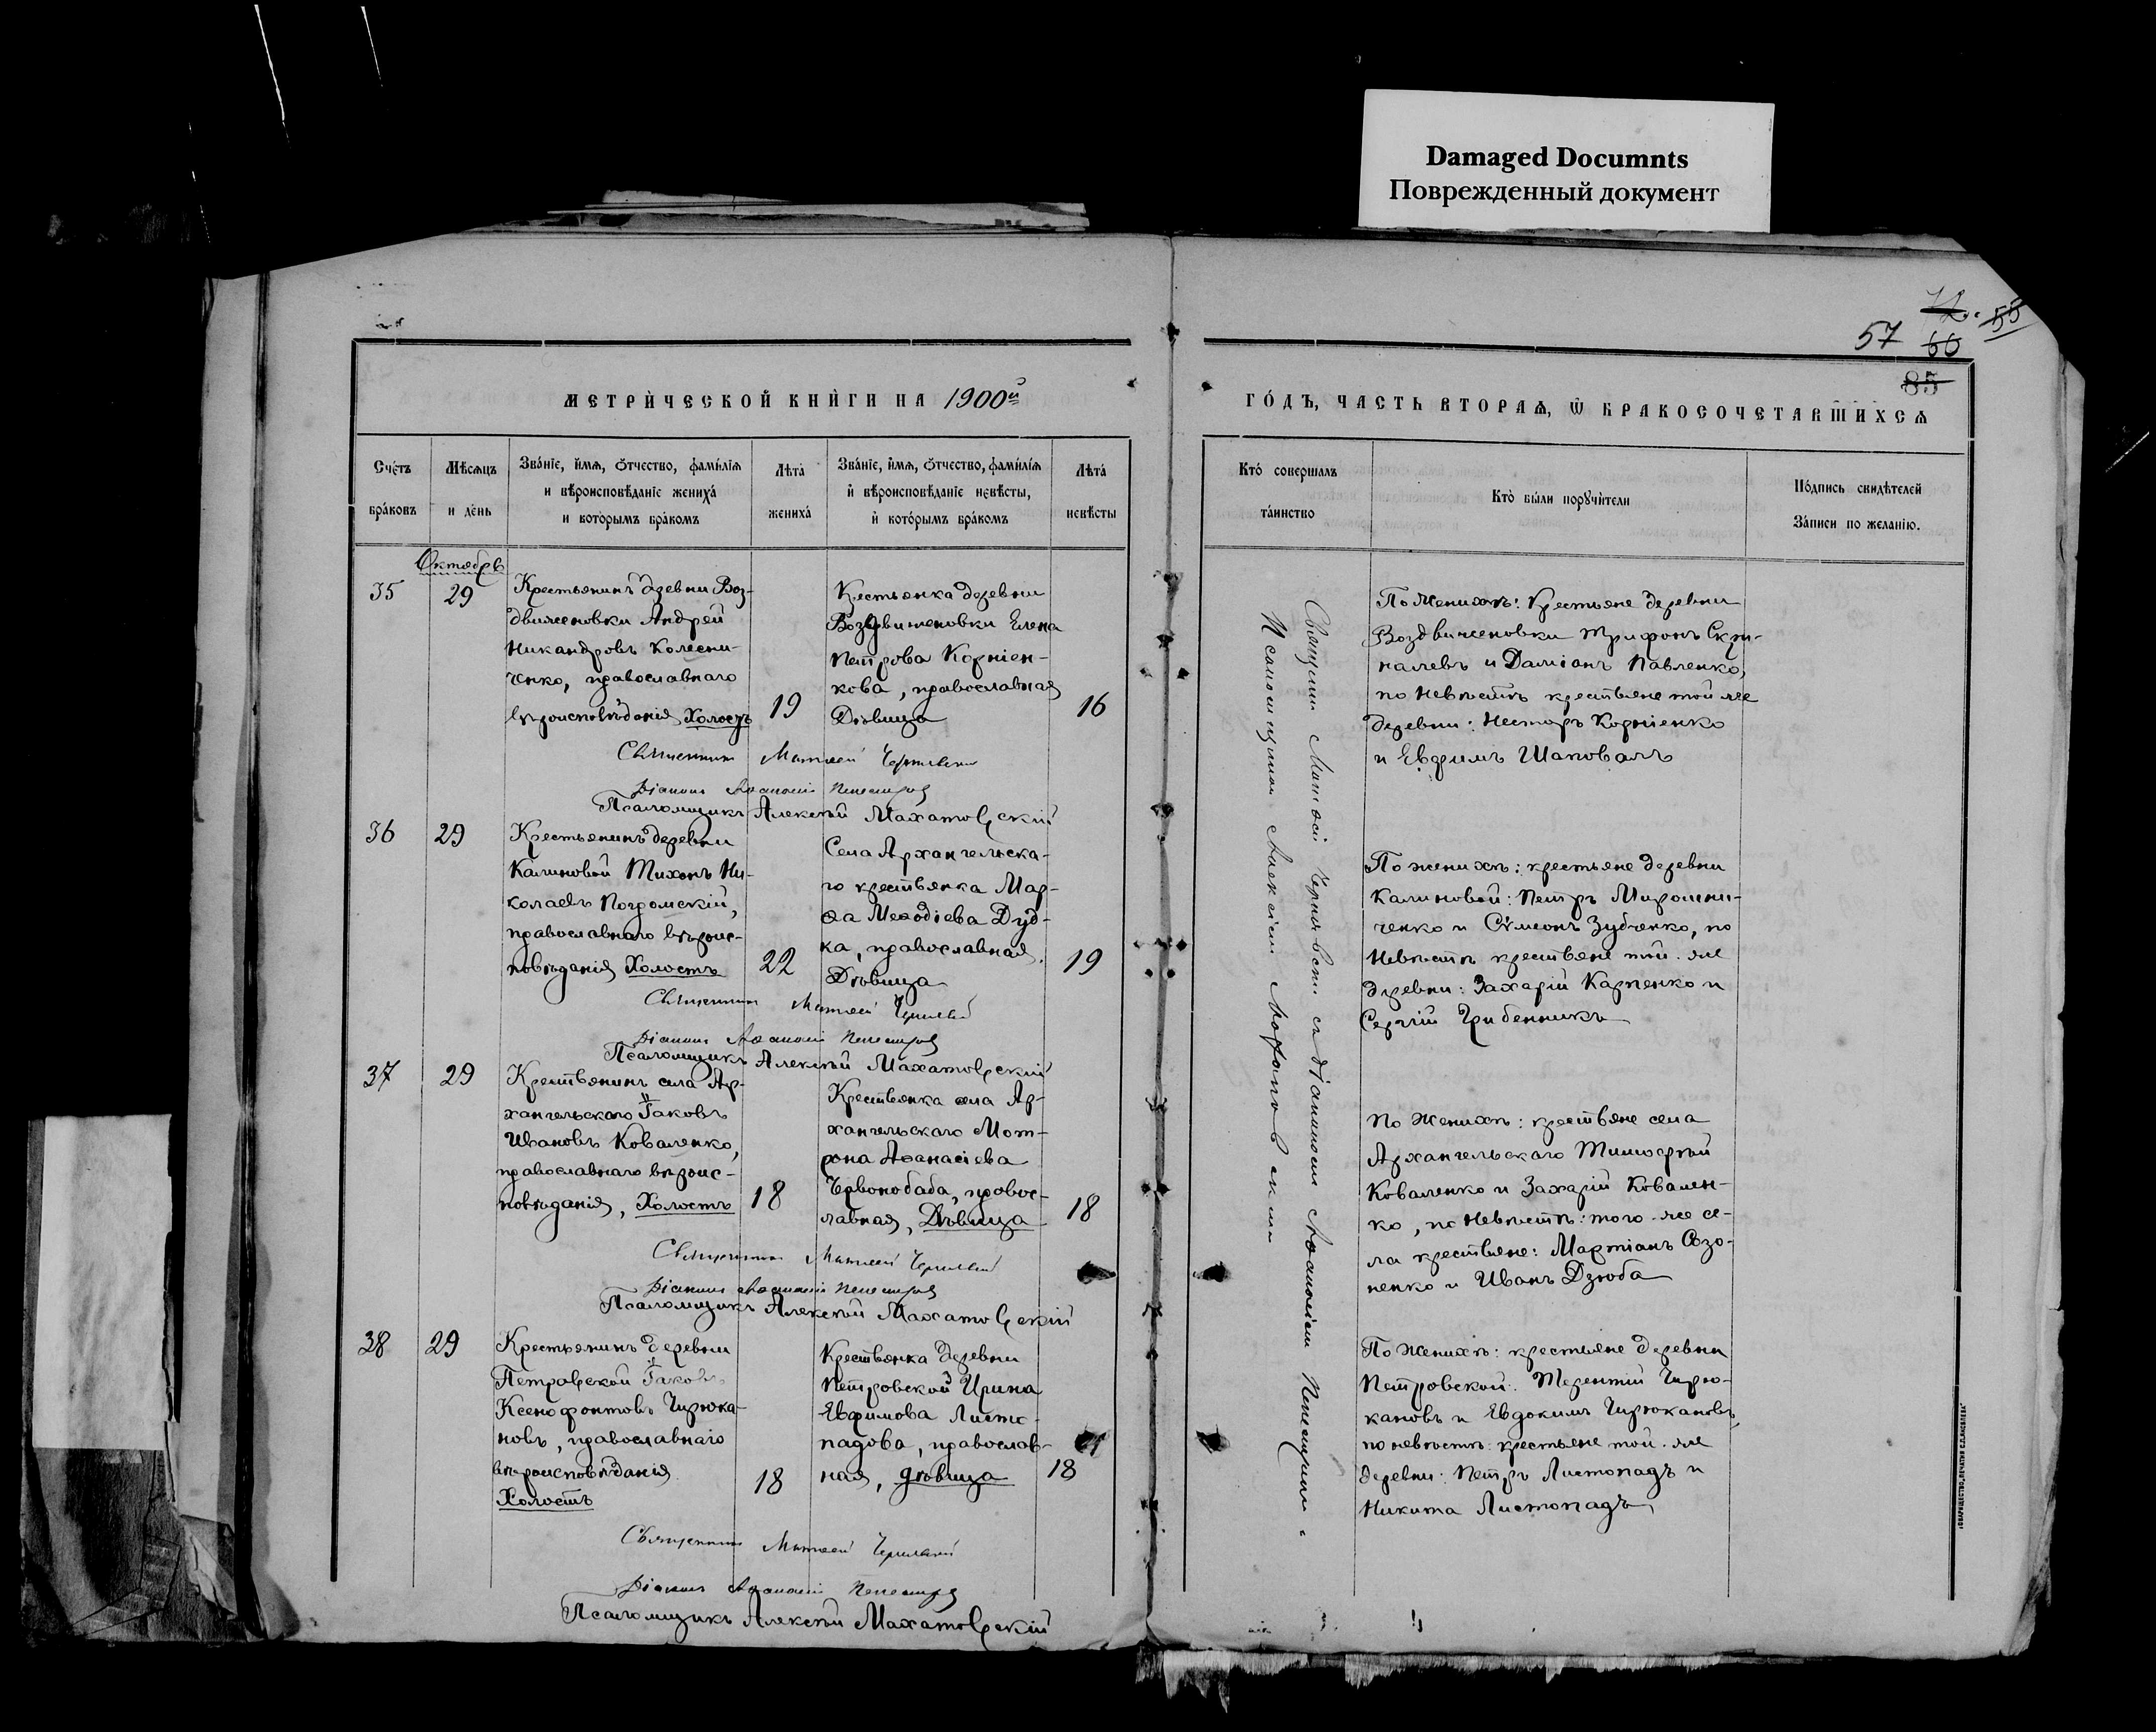 Damaged Documnts
Поврежденный документ
57
60
55
85
МЕТРИЧЕСКОЙ КНИГИ НА 1900й
ГОДЪ, ЧАСТЬ ВТОРАЯ, Ѿ БРАКОСОЧЕТАВШИХСЯ
Счетъ браковъ
Мѣсяцъ и день
Званіе, имя, отчество, фамилія
и вѣроисповѣданіе жениха
и которымъ бракомъ
Лѣта
жениха
Званіе, имя, отчество, фамилія
и вѣроисповѣданіе невѣсты,
и которымъ бракомъ
Лѣта
невѣсты
Кто совершалъ
таинство
Кто были поручители
Подпись свидѣтелей
Записи по желанію.
Октябрь
35
29
Крестьянинъ дзевни Воз-
движеновки Андрей
Никандровъ Колесни-
ченко, православнаго
вѣроисповѣданія Холостъ
19
Кестьянка деревни
Воздвиженовки Елена
Петрова Корніен-
кова, православная
Дѣвица
16
По Женихѣ: Крестьяне деревни
Воздвиженовки Трифонъ
и Даміанъ Павленко,
по Невѣстѣ крестьяне той же
деревни: Несторъ Корніенко
и Евфимъ Шаповалъ
Священникъ Матѳей
Діаконъ Аѳанасій
Псаломщикъ Алексѣй Махатовскій
36
29
Крестьянинъ деревни
Калиновой Тихонъ Ни-
колаевъ Погромскій,
православнаго вѣроис-
повѣданія Холостъ
22
Села Архангельска-
го крестьянка Мар-
ѳа Меѳодіева Дуд-
ка, православная.
Дѣвица
19
По женихѣ: крестьяне деревни
Калиновой: Петръ Мирошни-
ченко и Сѵмеонъ Зубченко, по
Невѣстѣ крестьяне той-же
деревни: Захарій Карпенко и
Сергій Грибенникъ
Священникъ Матѳей
Діаконъ Аѳанасій
Псаломщикъ Алексѣй Махатовскій
37
29
Крестьянинъ села Ар-
хангельскаго Іаковъ
Ивановъ Коваленко,
православнаго вѣроис-
повѣданія, Холостъ
18
Крестьянка села Ар-
хангельскаго Мот-
рона Аѳанасіева
Червонобаба, правос-
лавная, Дѣвица
18
По Женихѣ: крестьяне села
Архангельскаго Тимоѳей
Коваленко и Захарій Ковален-
ко, по Невѣстѣ: того-же се-
ла крестьяне: Мартіанъ Созо-
ненко и Иванъ Дзюба
Священникъ Матѳей
Діаконъ Аѳанасій
Псаломщикъ Алексѣй Махатовскій
38
29
Крестьянинъ деревни
Петровской Іаковъ
Ксенофонтовъ Чирюка-
новъ, православнаго
вѣроисповѣданія
Холостъ
18
Крестьянка деревни
Петровской Ирина
Евфимова Листо-
падова, православ-
ная, дѣвица
18
По Женихѣ: крестьяне деревни
Петровской: Терентій Чирю-
кановъ и Евдокимъ Чирюкановъ,
по невѣстѣ: крестьяне той-же
деревни: Петръ Листопадъ и
Никита Листопадъ
Священникъ Матѳей
Діаконъ Аѳанасій
Псаломщикъ Алексѣй Махатовскій